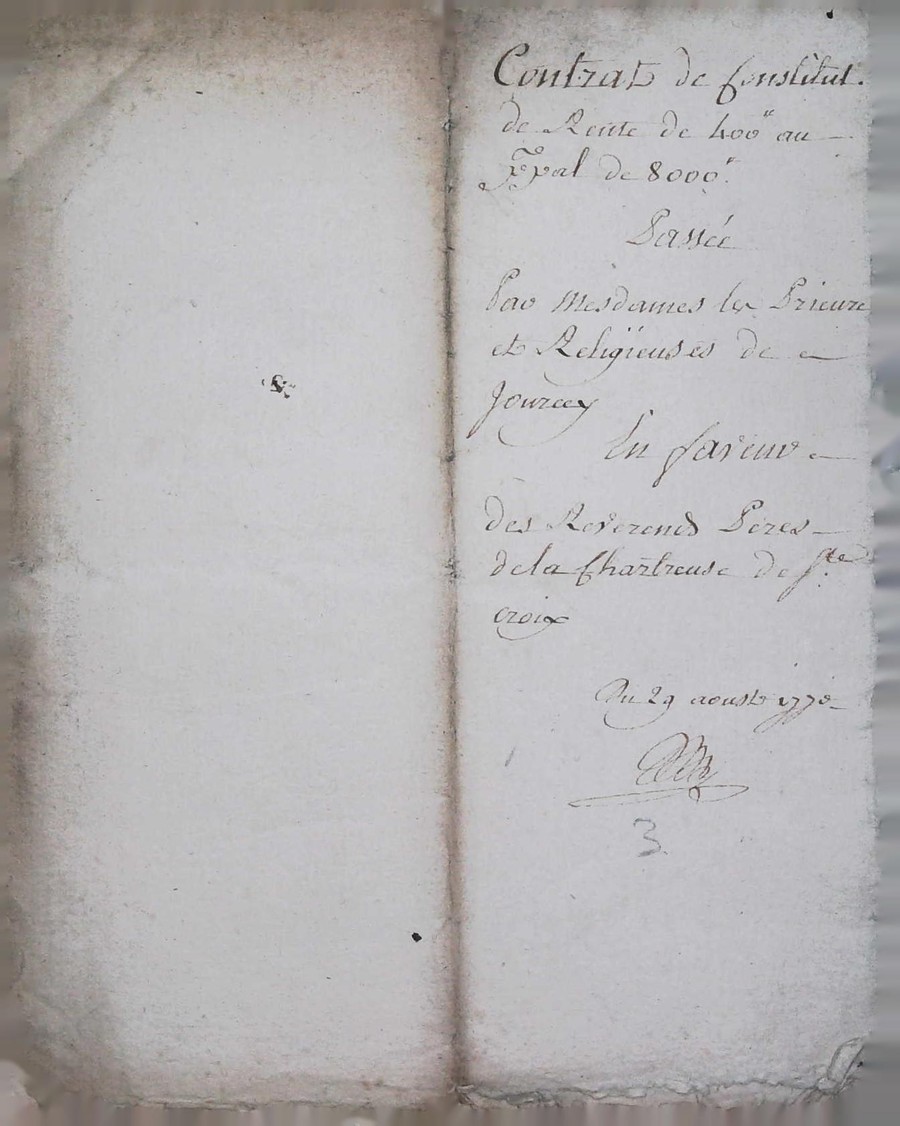 Contrat de Constitut.
de Rente de 400" au
ppal de 8000"
Passée
Par Mesdames les Prieure
et Religieuses de
Jourcey
En faveur
des Reverends Peres
de la Chartreuse de Ste
croix
Du 29 aoust
3